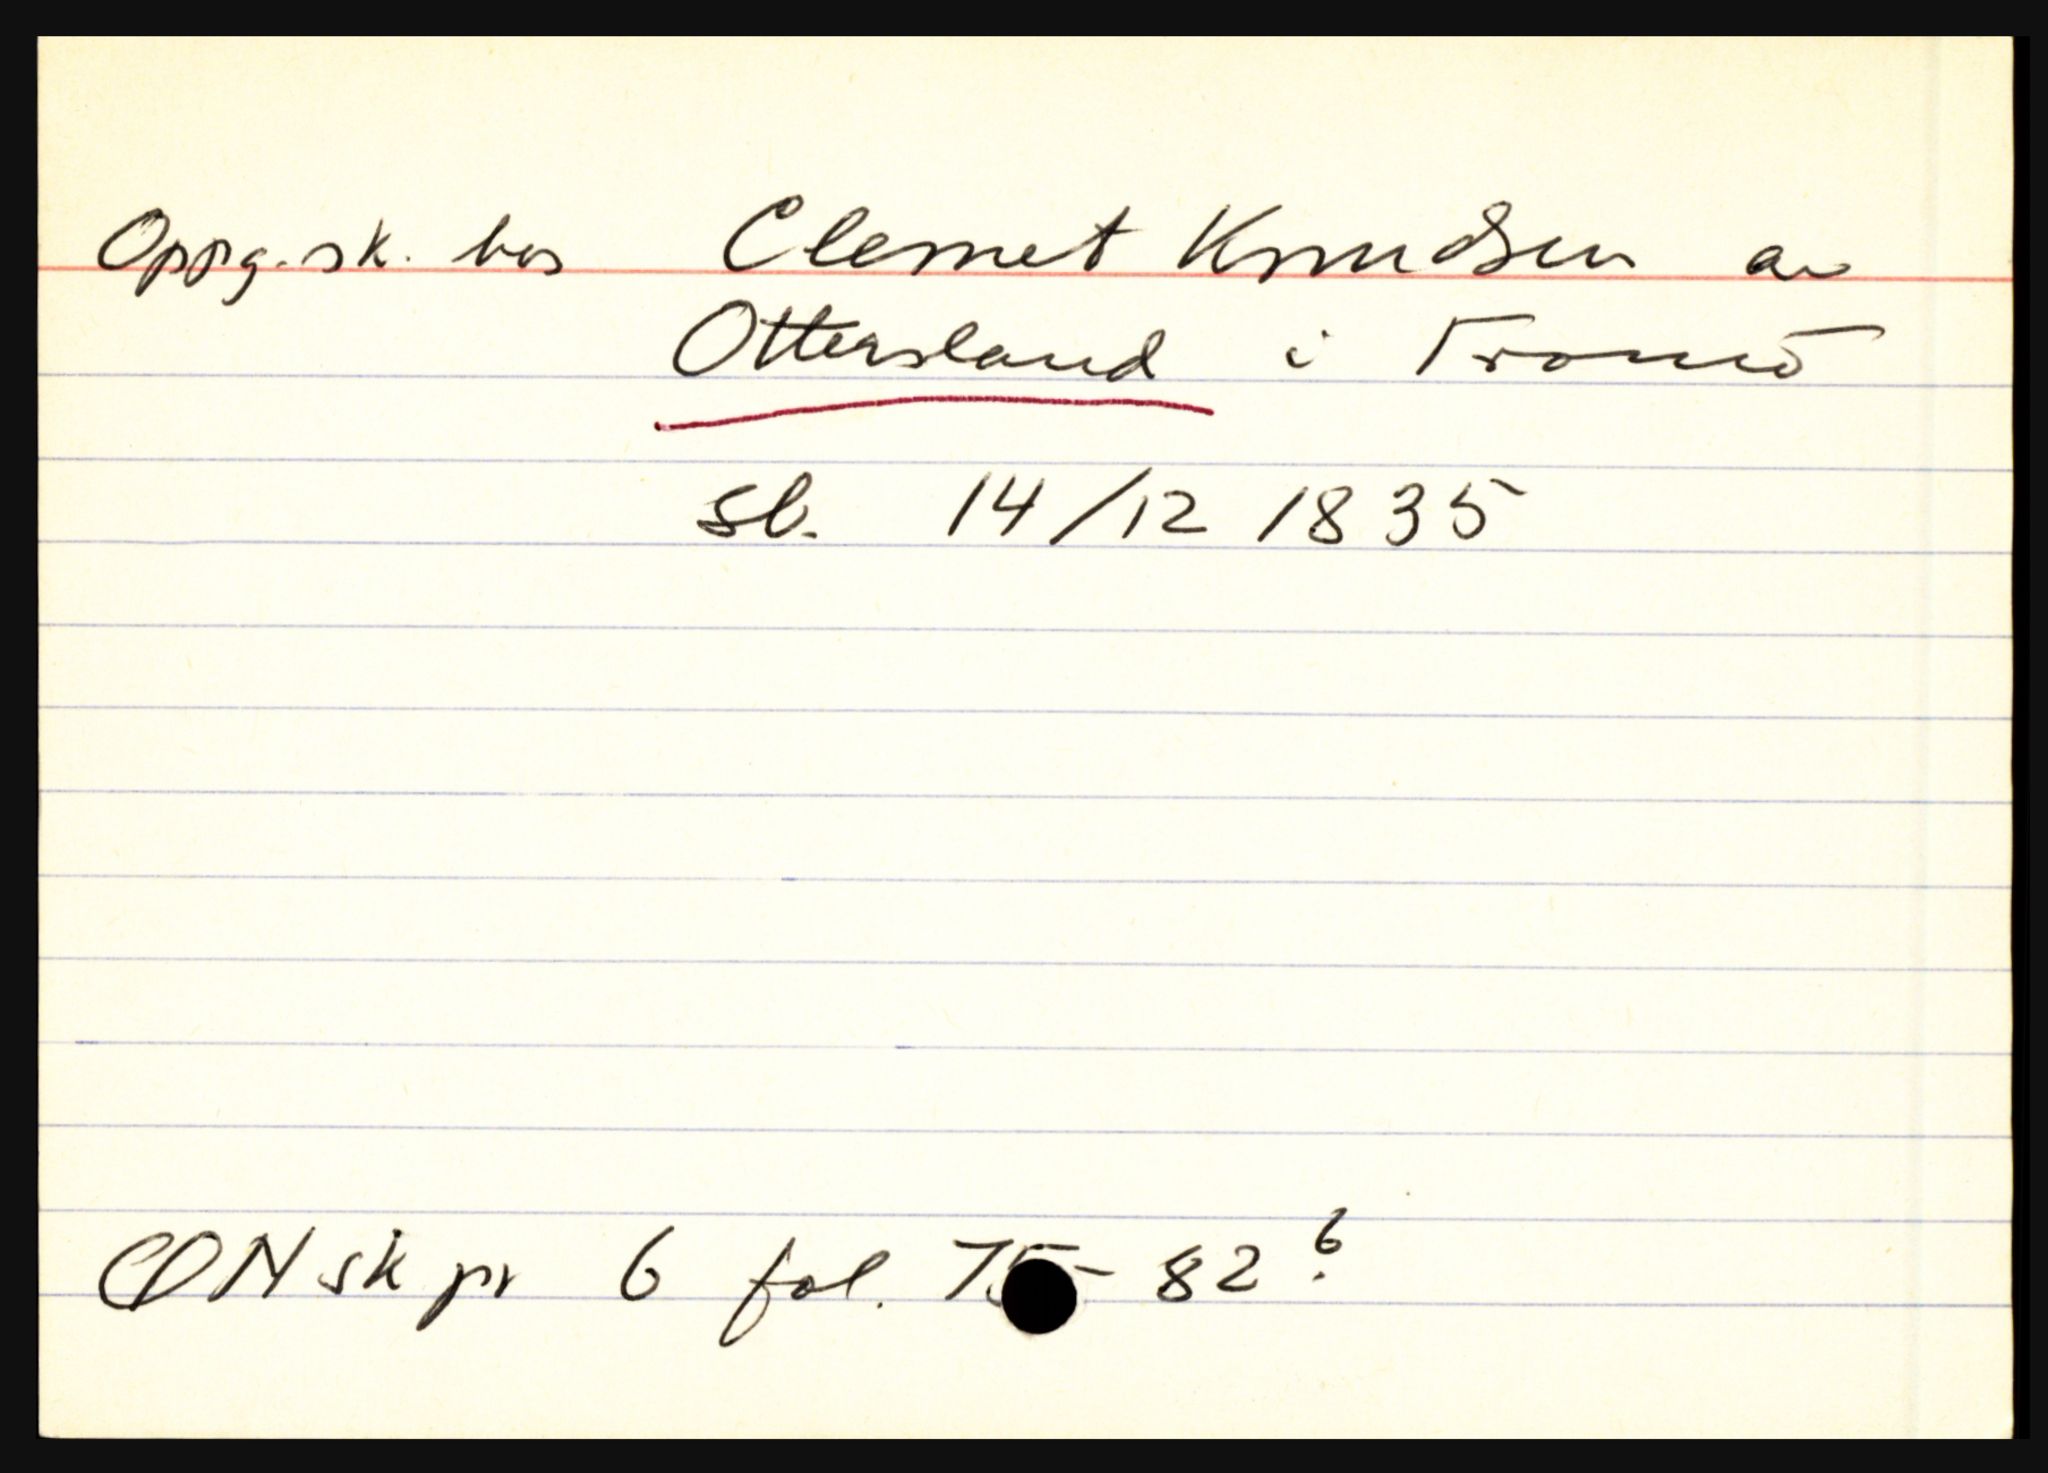 Oppg. sk. hos Clemet Knudsen av
Ottersland i Tromö
sb. 14/12 1835
CDN sk pr 6 fol. 75 - 82 6.